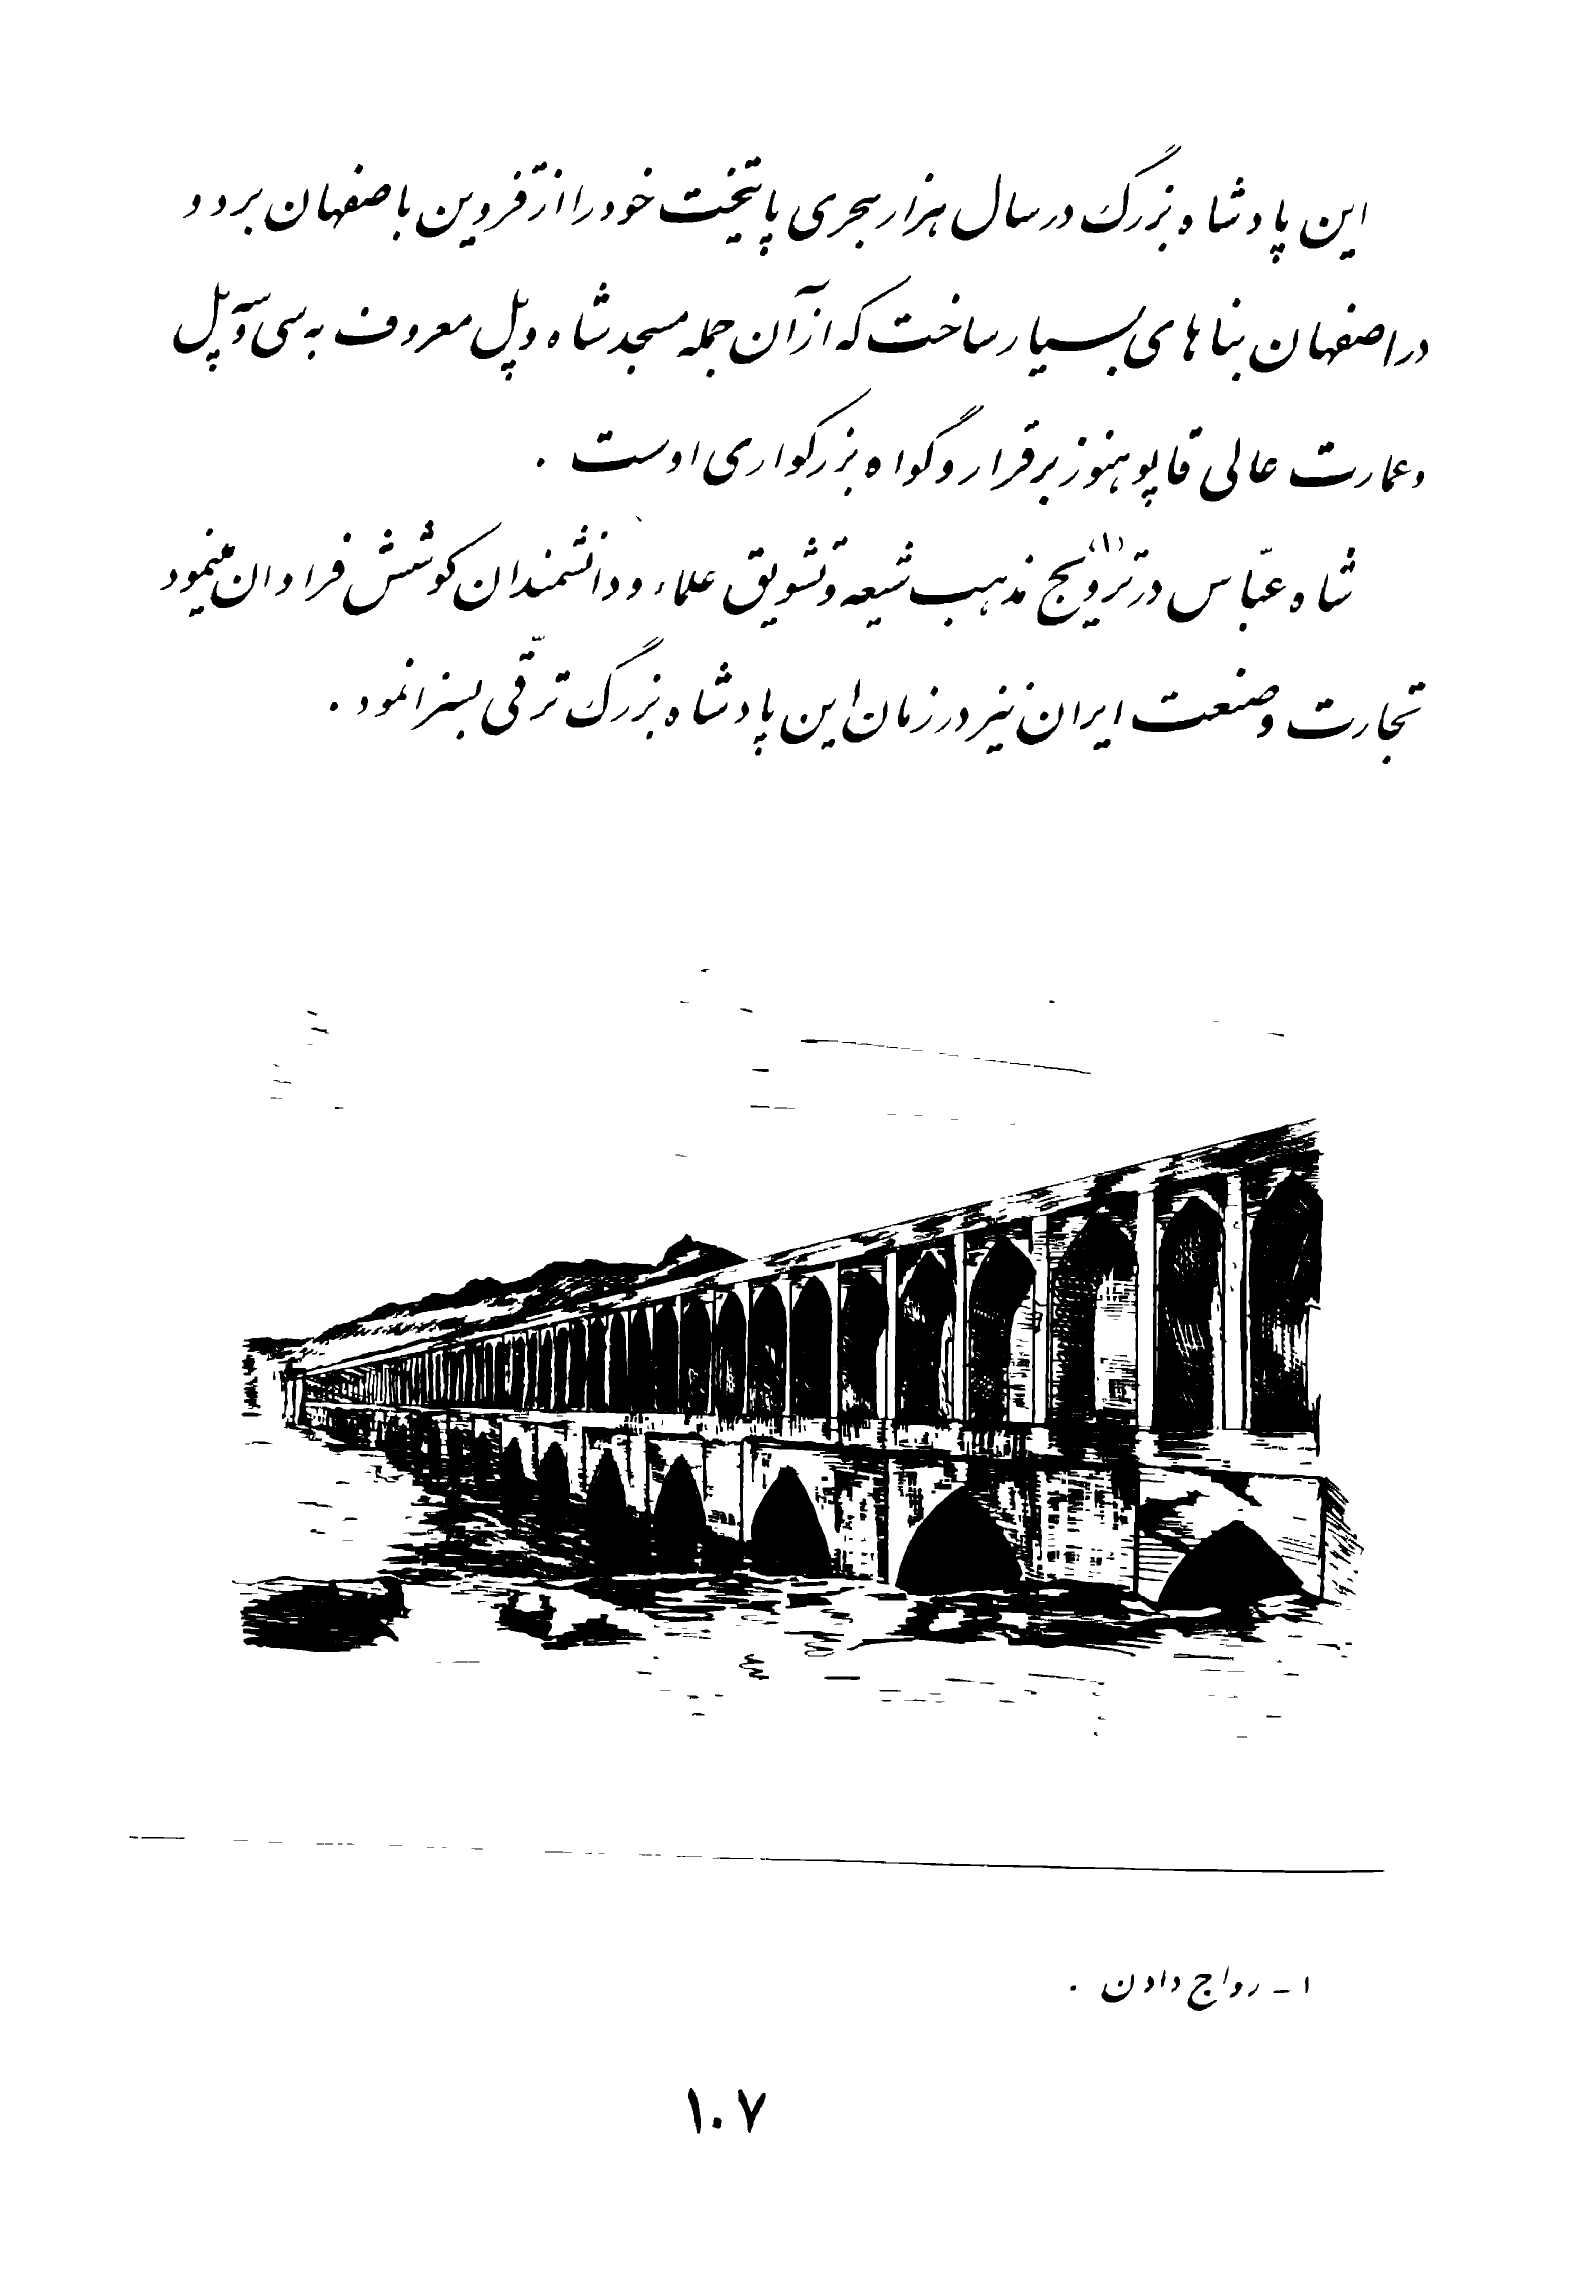 این پادشاه بزرگ در سال هزار هجری پایتخت خود را از قزوین باصفهان برد و
در اصفهان بناهای بسیار ساخت که از آن جمله مسجد شاه و پل معروف به سی و سه پل
و عمارت عالی قاپو هنوز برقرار و گواه بزرگواری اوست .
شاه عبّاس در ترویج (۱) مذهب شیعه و تشویق علماء و دانشمندان کوشش فراوان مینمود
تجارت و صنعت ایران نیز در زمان این پادشاه بزرگ ترقّی بسزا نمود .
۱ - رواج دادن .
۱۰۷